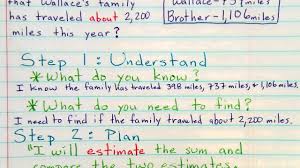 that Wallace's family
has traveled about 2,200
miles this year?
Brother-1,106 miles
Step 1: Understand
*What do you know?
I know the family has traveled 398 miles, 737 miles, & 1,106 miles.
*What do you need to find?
I need to find if the family traveled about 2,200 miles.
Step 2: Plan
*I will estimate the sum and
compare the two estimates.